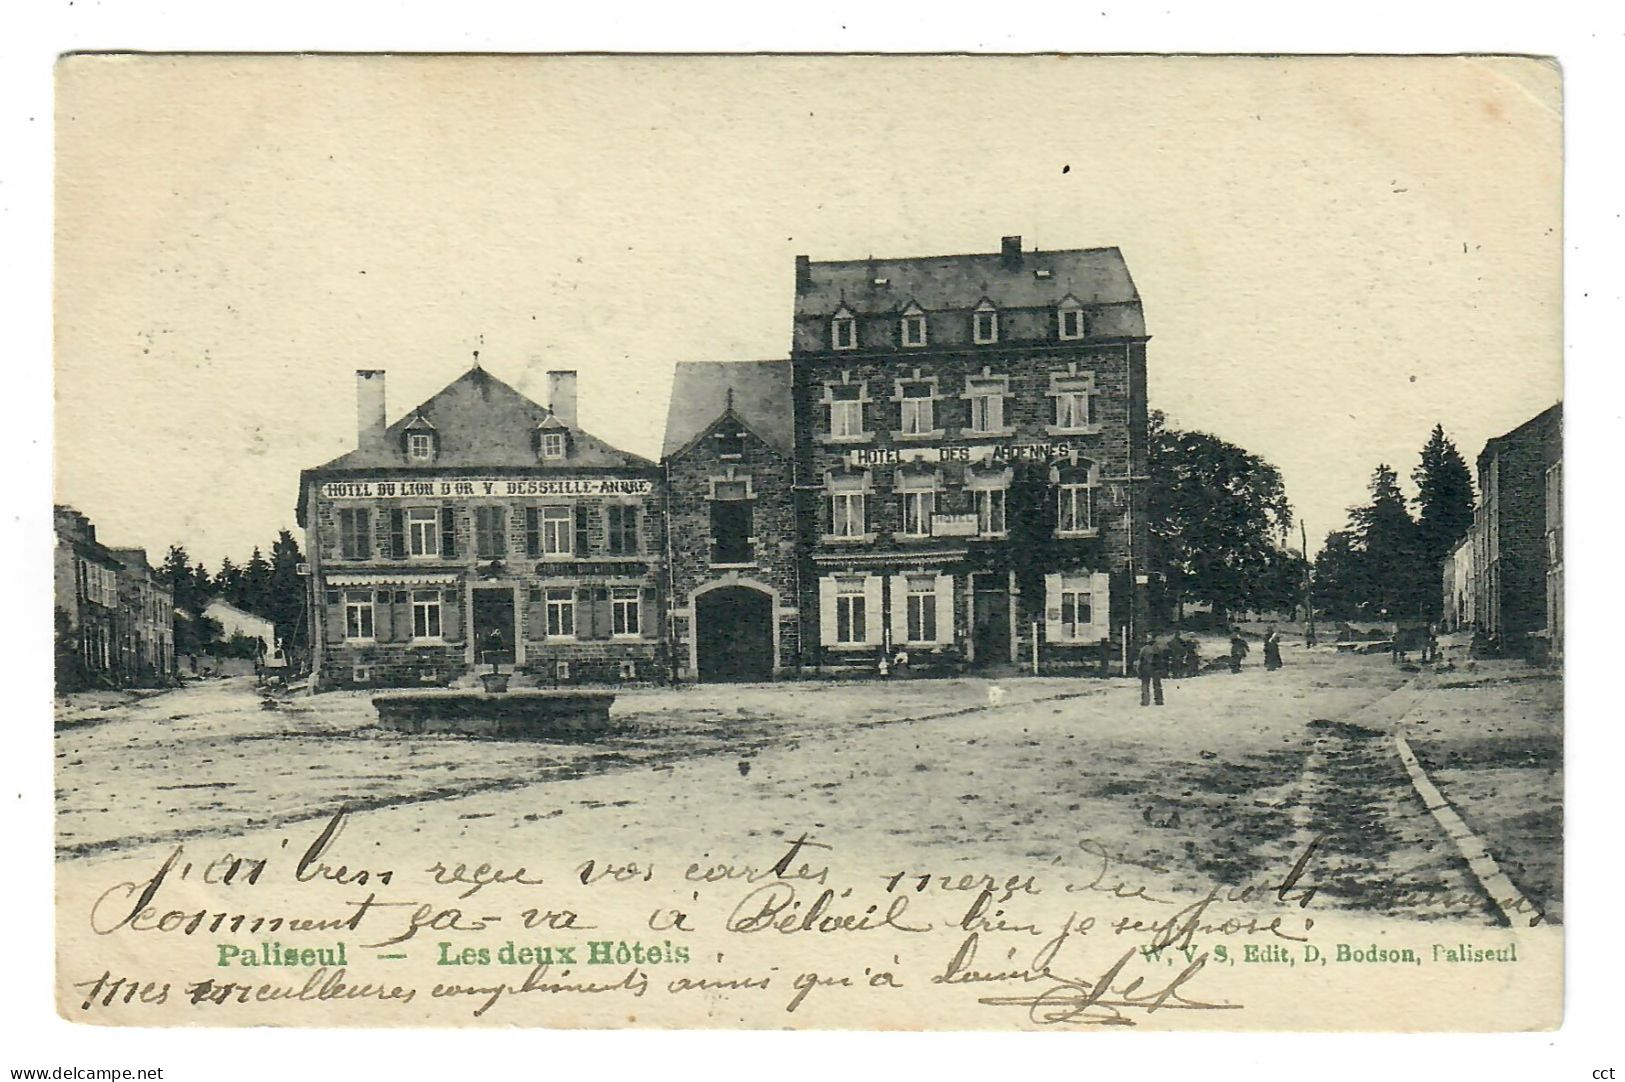 HÔTEL DU LION D'OR V. DESSEILLE-ANDRÉ
HÔTEL DES ARDENNES
HÔTEL
J'ai bien reçu vos cartes, merci
comment ça-va à Béloeil bien je suppose.
Paliseul — Les deux Hôtels
W, V, S, Edit, D, Bodson, Paliseul
Mes meilleures compliments ainsi qu'à
www.delcampe.net
cct